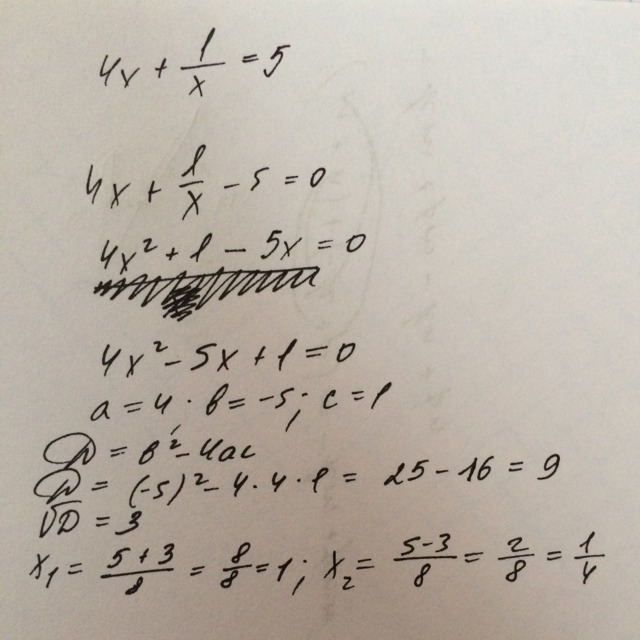 4x + 1/x = 5
4x + 1/x - 5 = 0
4x² + 1 - 5x = 0
4x² - 5x + 1 = 0
a = 4; b = -5; c = 1
D = b² - 4ac
D = (-5)² - 4 · 4 · 1 = 25 - 16 = 9
√D = 3
x₁ = (5+3)/8 = 8/8 = 1; x₂ = (5-3)/8 = 2/8 = 1/4